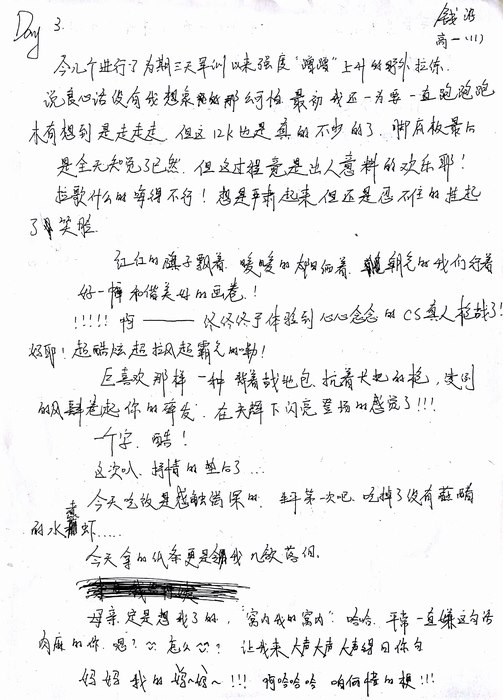 Day 3.
钱滢
高一.(11)
今儿个进行了为期三天军训以来强度"蹭蹭"上升的野外拉练.
说良心话没有我想象的那么可怕 最初我还一为要一直跑跑跑
木有想到是走走走 但这12k也是真的不少的了. 脚后板最后
是全无知觉了已然. 但这过程竟是出人意料的欢乐耶!
拉歌什么的嗨得不行! 想是严肃起来但还是忍不住的挂起
了笑脸
红红的旗子飘着. 暖暖的太阳晒着. 朝气的我们行着
好一幅和谐美好的画卷!
!!!!! 啊——— 终终终于体验到心心念念的CS真人枪战了!
好耶! 超酷炫超拉风超霸气的嘞!
巨喜欢那样一种 背着战地包. 扛着大把的枪, 凌冽
的风肆卷起你的碎发. 在关辉下闪亮登场的感觉了!!!
一个字. 酷!
这次叭. 抒情的垫后了...
今天吃饭是感触尚深的. 平第一次吧 吃掉了没有蘸醋
的水煮虾.....
今天拿的纸条更是令我几欲落泪.
母亲定是想我了的, "窝内我的窝内" 哈哈. 平常一直嫌这句话
肉麻的你. 嗯? 怎么? 让我来大声大声大声得回你句
妈妈我的妈~妈~!!! 啊哈哈哈 咱何惜的梗!!!